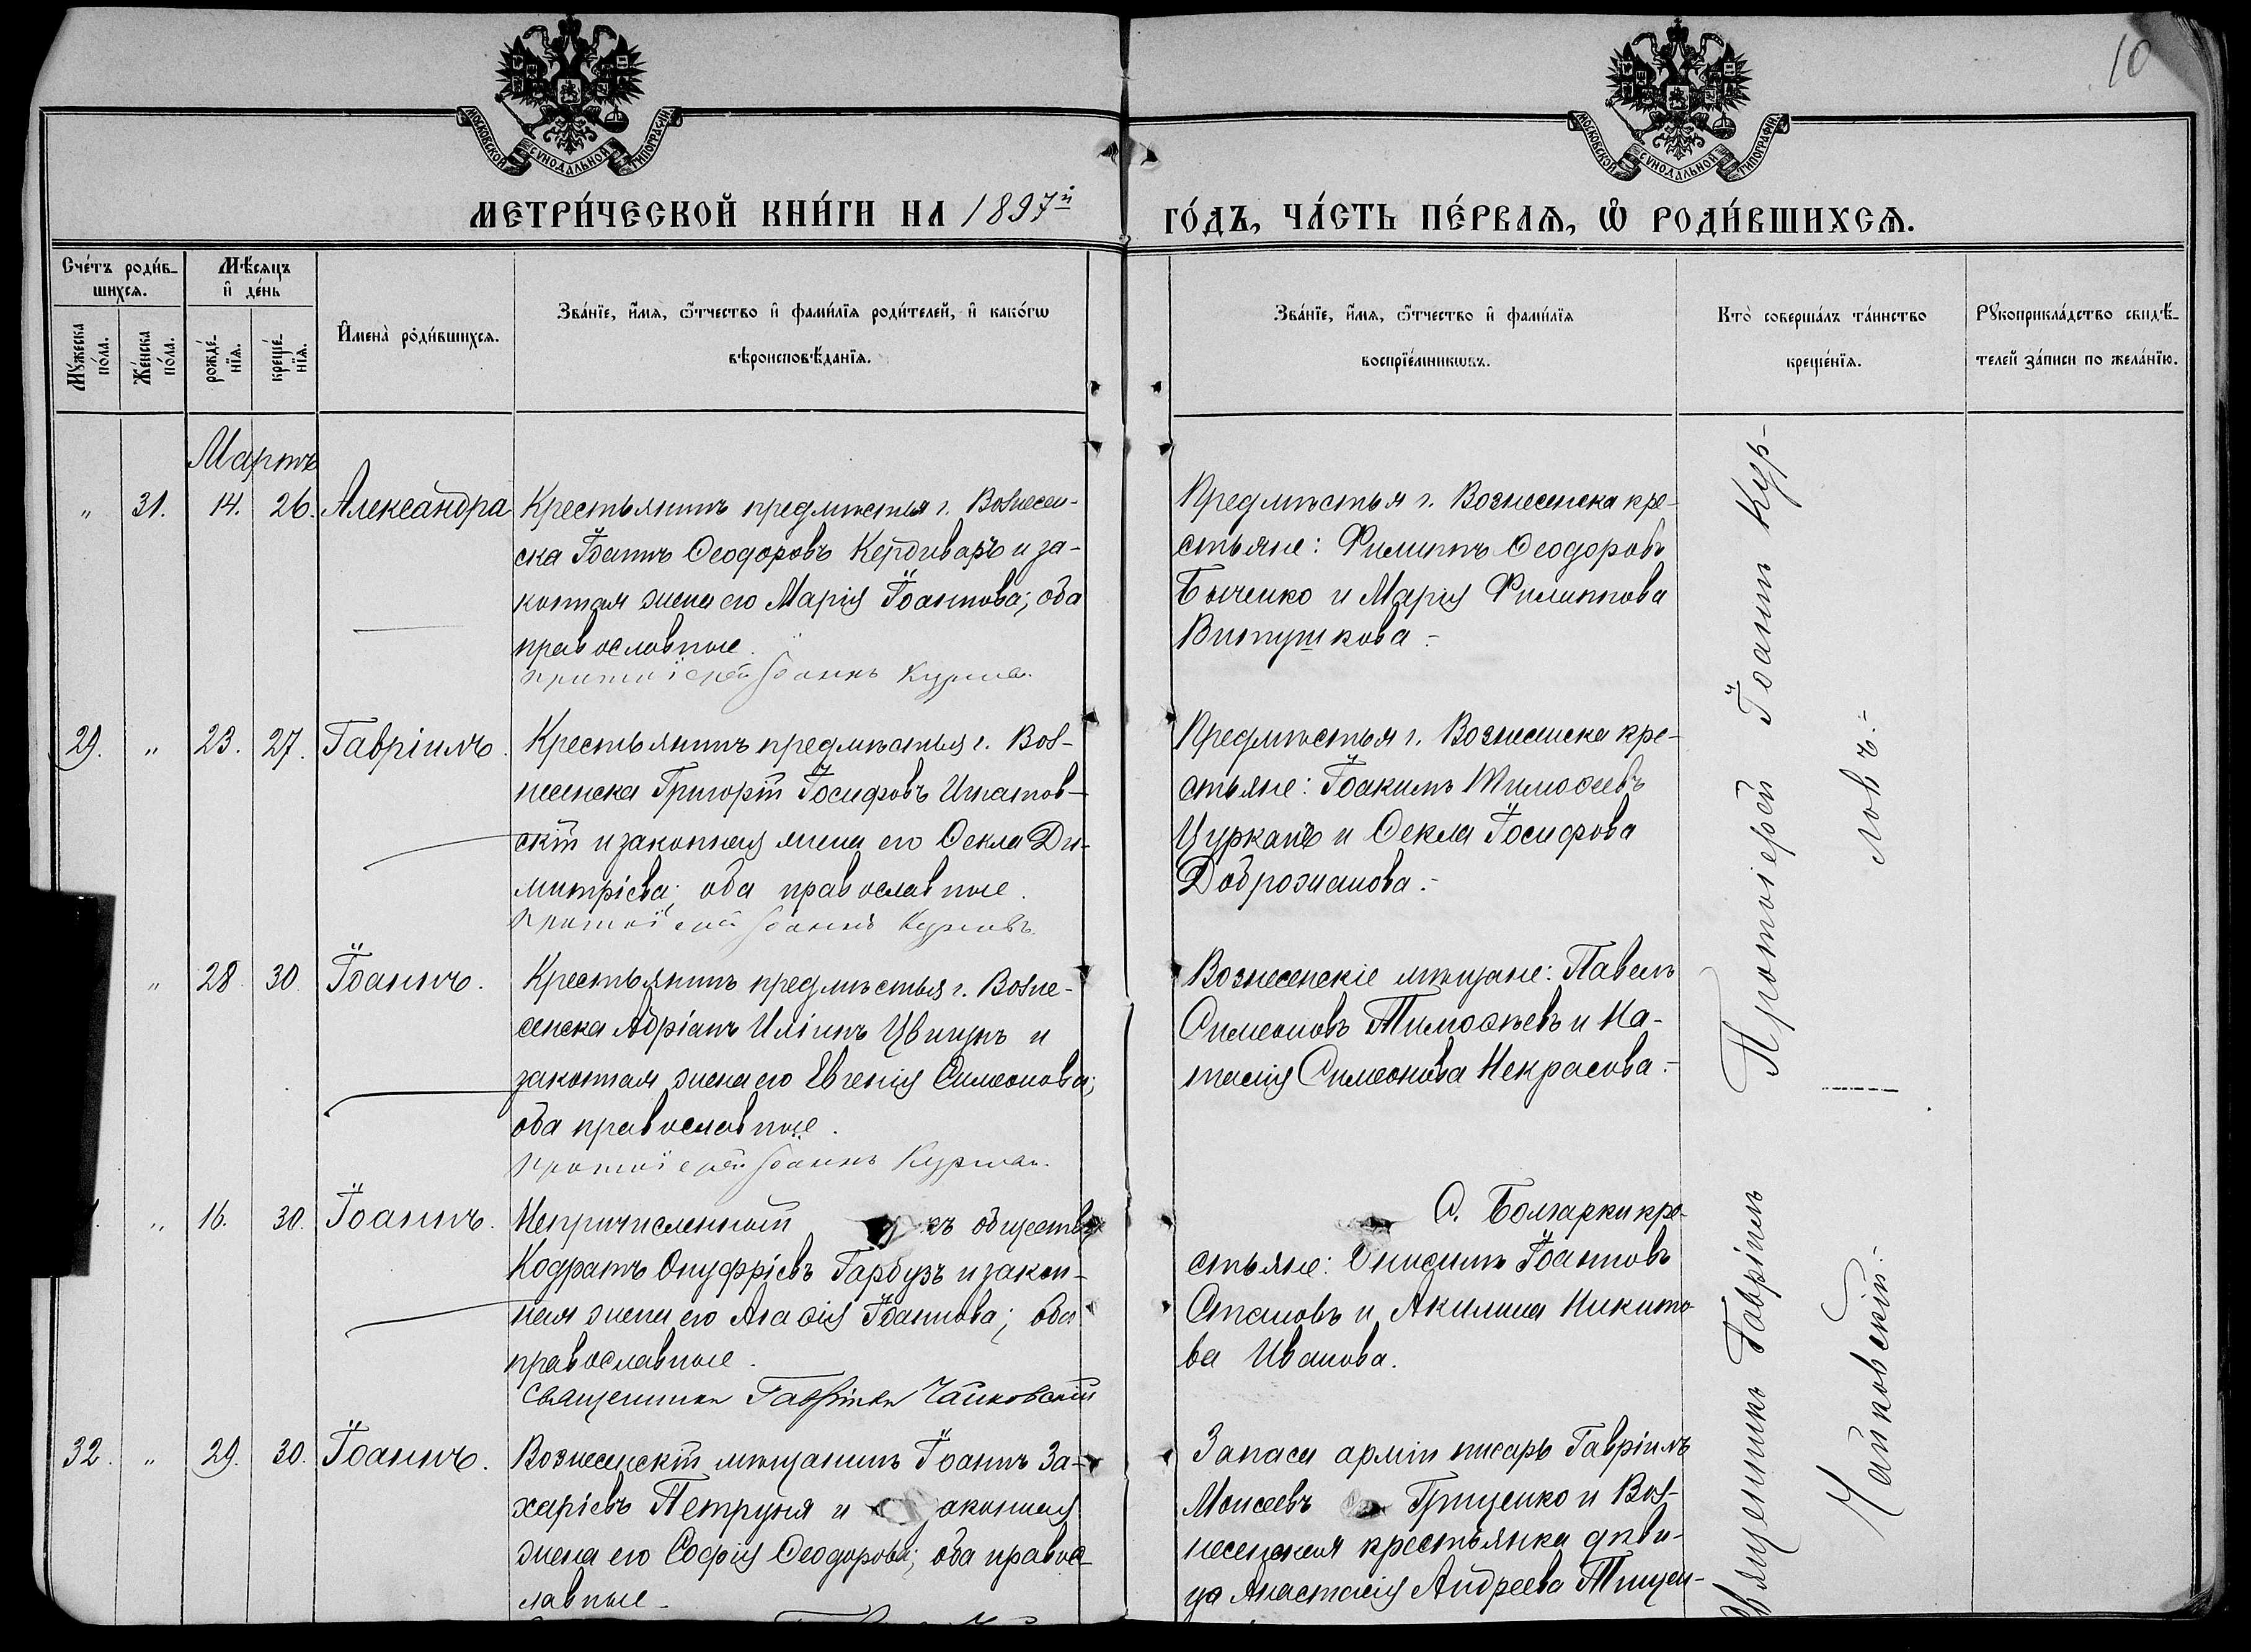 10
МОСКОВСКОЙ СѴНОДАЛЬНОЙ ТИПОГРАФІИ
МОСКОВСКОЙ СѴНОДАЛЬНОЙ ТИПОГРАФІИ
МЕТРИ́ЧЕСКОЙ КНИ́ГИ НА 1897й
ГО́ДЪ, ЧА́СТЬ ПЕ́РВАѦ, Ѡ҆ РОДИ́ВШИХСѦ.
Сче́тъ роди́в-
шихсѧ.
Мꙋ́жеска
по́ла.
Же́нска
по́ла.
Мѣ́сѧцъ
и҆ де́нь
рожде́-
нїѧ.
креще́-
нїѧ.
И҆мена̀ роди́вшихсѧ.
Зва́нїе, и҆́мѧ, ѻ҆́тчество и҆ фами́лїѧ роди́телей, и҆ како́гѡ
вѣроисповѣ́данїѧ.
Зва́нїе, и҆́мѧ, ѻ҆́тчество и҆ фами́лїѧ
воспрїе́мникѡвъ.
Кто̀ соверша́лъ та́инство
креще́нїѧ.
Рꙋкоприкла́дство свидѣ́-
телей за́писи по жела́нїю.
Мартъ
" 31. 14. 26. Александра
Крестьянинъ предмѣстья г. Вознесен-
ска Іоаннъ Ѳеодоровъ Кердиваръ и за-
конная жена его Марія Іоаннова; оба
православные.
Протоіерей Іоаннъ Курловъ
Предмѣстья г. Вознесенска кре-
стьяне: Филиппъ Ѳеодоровъ
Быченко и Марія Филиппова
Винтушкова.-
29. " 23. 27. Гавріилъ.
Крестьянинъ предмѣстья г. Воз-
несенска Григорій Іосифовъ Игнатов-
скій и законная жена его Ѳекла Ди-
митріева; оба православные.
Протоіерей Іоаннъ Курловъ
Предмѣстья г. Вознесенска кре-
стьяне: Іоакимъ Тимоѳеевъ
Цурканъ и Ѳекла Іосифова
Доброжанова.-
" 28. 30. Іоаннъ.
Крестьянинъ предмѣстья г. Возне-
сенска Адріанъ Иліинъ Цвигунъ и
законная жена его Евгенія Симеонова;
оба православные.
Протоіерей Іоаннъ Курловъ
Вознесенскіе мѣщане: Павелъ
Симеоновъ Тимоѳѣевъ и На-
талія Симеонова Некрасова.-
Протоіерей Іоаннъ Кур-
ловъ.-
" 16. 30. Іоаннъ.
Непричисленный къ обществу
Кодратъ Онуфріевъ Гарбузъ и закон-
ная жена его Агаѳія Іоаннова; оба
православные.
Священникъ Гавріилъ Чайковскій
С. Болгарки кре-
стьяне: Онисимъ Іоанновъ
Становъ и Акилина Никито-
ва Иванова.
32. " 29. 30. Іоаннъ.
Вознесенскій мѣщанинъ Іоаннъ За-
харіевъ Петруня и законная
жена его Софія Ѳеодорова; оба правос-
лавные.
Запаса арміи писарь Гавріилъ
Моисеевъ Гриценко и Воз-
несенская крестьянка дѣви-
ца Анастасія Андреева Тищен-
Священникъ Гавріилъ
Чайковскій.-